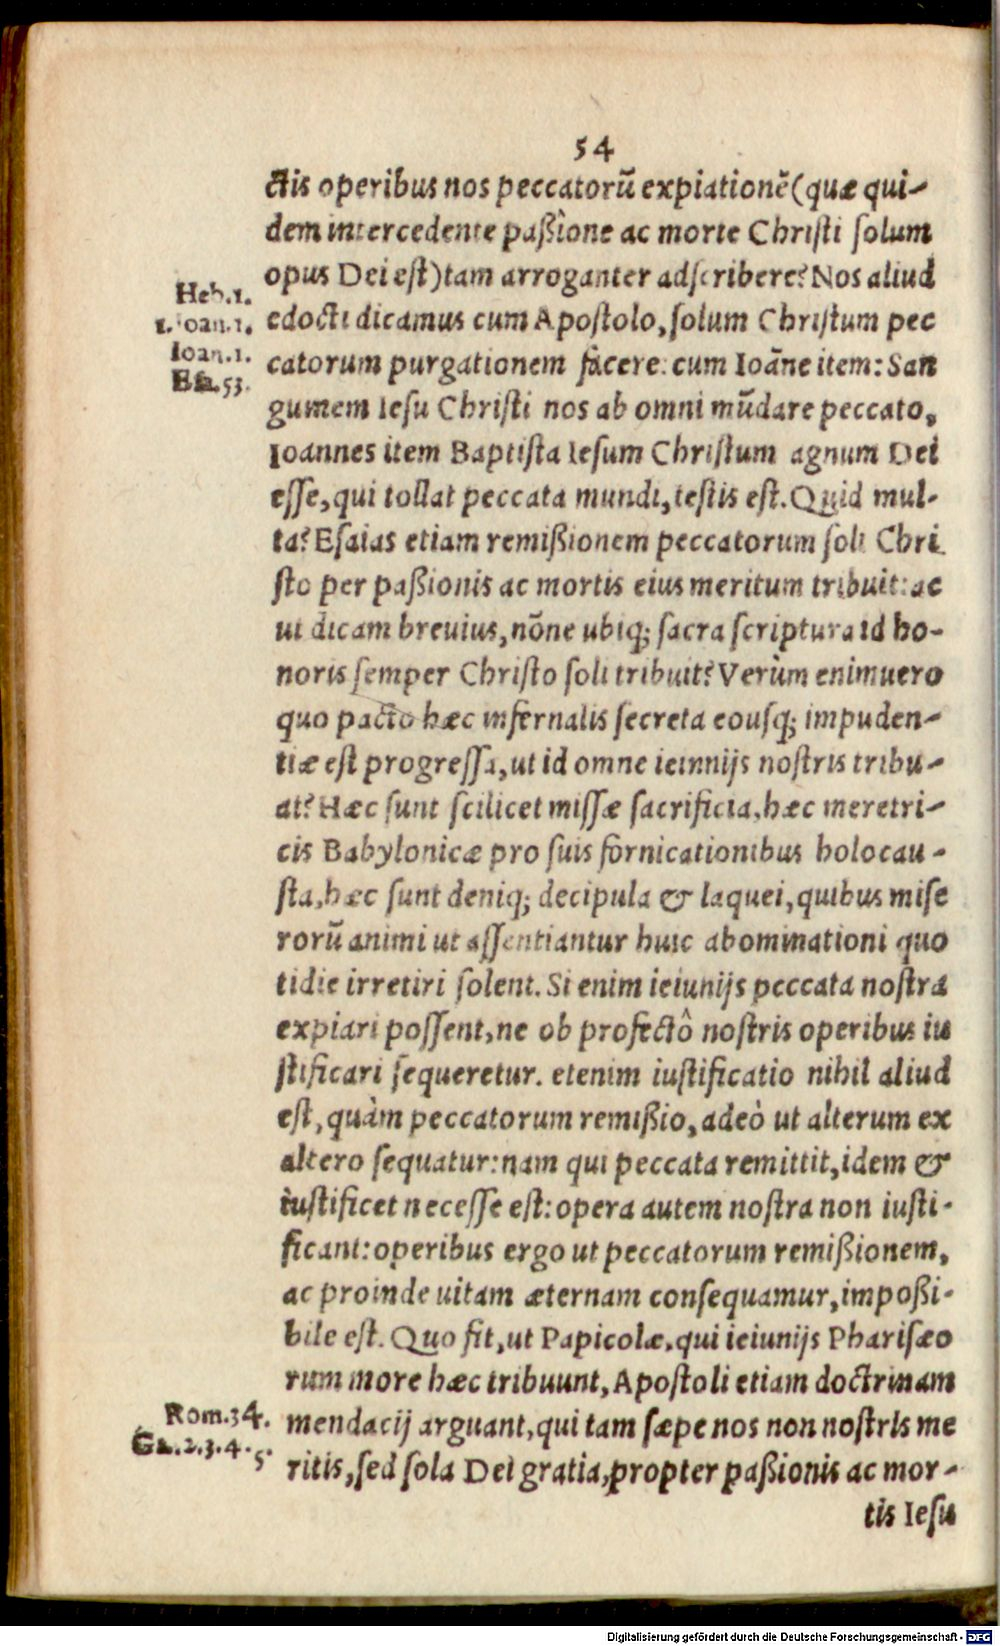 54
ctis operibus nos peccatorū expiationē (quæ qui-
dem intercedente paßione ac morte Christi solum
opus Dei est) tam arroganter adscribere? Nos aliud
Heb.1.
edocti dicamus cum Apostolo, solum Christum pec
1.Ioan.1.
catorum purgationem facere: cum Ioāne item: San
Ioan.1.
Esa.53.
guinem Iesu Christi nos ab omni mūdare peccato,
Ioannes item Baptista Iesum Christum agnum Dei
esse, qui tollat peccata mundi, testis est. Quid mul-
ta? Esaias etiam remißionem peccatorum soli Chri
sto per paßionis ac mortis eius meritum tribuit: ac
ut dicam breuius, nōne ubiq; sacra scriptura id ho-
noris semper Christo soli tribuit? Verùm enimuero
quo pacto hæc infernalis secreta eousq; impuden-
tiæ est progressa, ut id omne ieiunijs nostris tribu-
at? Hæc sunt scilicet missæ sacrificia, hæc meretri-
cis Babylonicæ pro suis fornicationibus holocau-
sta, hæc sunt deniq; decipula & laquei, quibus mise
rorū animi ut assentiantur huic abominationi quo
tidie irretiri solent. Si enim ieiunijs peccata nostra
expiari possent, ne ob profectô nostris operibus iu
stificari sequeretur. etenim iustificatio nihil aliud
est, quàm peccatorum remißio, adeò ut alterum ex
altero sequatur: nam qui peccata remittit, idem &
iustificet necesse est: opera autem nostra non iusti-
ficant: operibus ergo ut peccatorum remißionem,
ac proinde uitam æternam consequamur, impoßi-
bile est. Quo fit, ut Papicolæ, qui ieiunijs Pharisæo
rum more hæc tribuunt, Apostoli etiam doctrinam
Rom.34.
mendacij arguant, qui tam sæpe nos non nostris me
Ga.2.3.4.5.
ritis, sed sola Dei gratia, propter paßionis ac mor-
tis Iesu
Digitalisierung gefördert durch die Deutsche Forschungsgemeinschaft - DFG